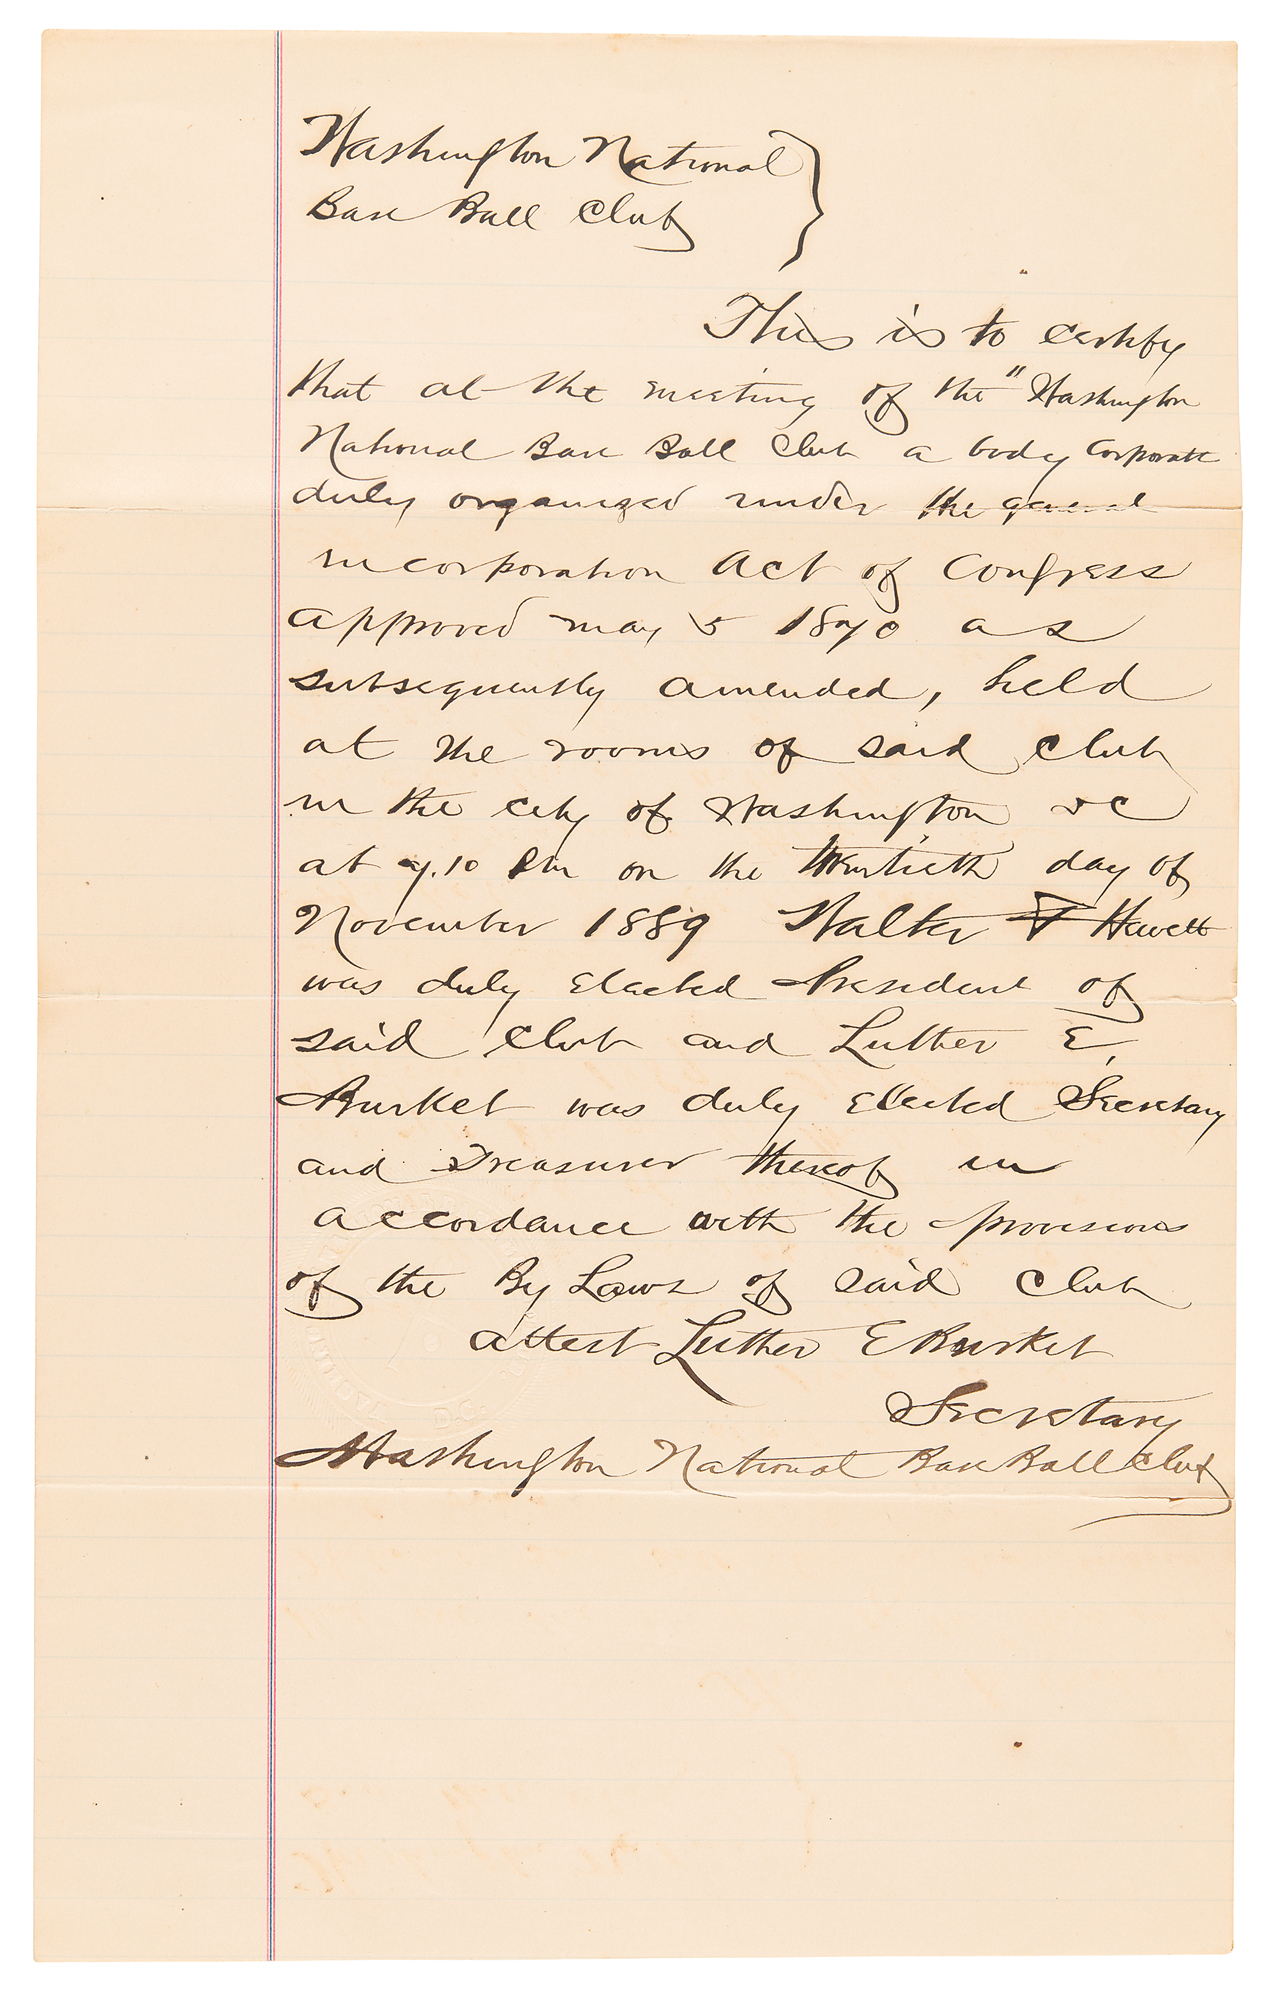 Washington National
Base Ball Club
This is to certify
that at the meeting of the "Washington
National Base Ball Club a body corporate
duly organized under the general
incorporation Act of Congress
approved may 5 1870 as
subsequently amended, held
at the rooms of said Club
in the city of Washington DC
at 7.10 Pm on the twentieth day of
November 1889 Walter F Hewett
was duly elected President of
said Club and Luther E.
Burket was duly elected Secretary
and Treasurer thereof in
accordance with the provisions
of the By Laws of said Club
attest Luther E Burket
Secretary
Washington National Base Ball Club
D.C.